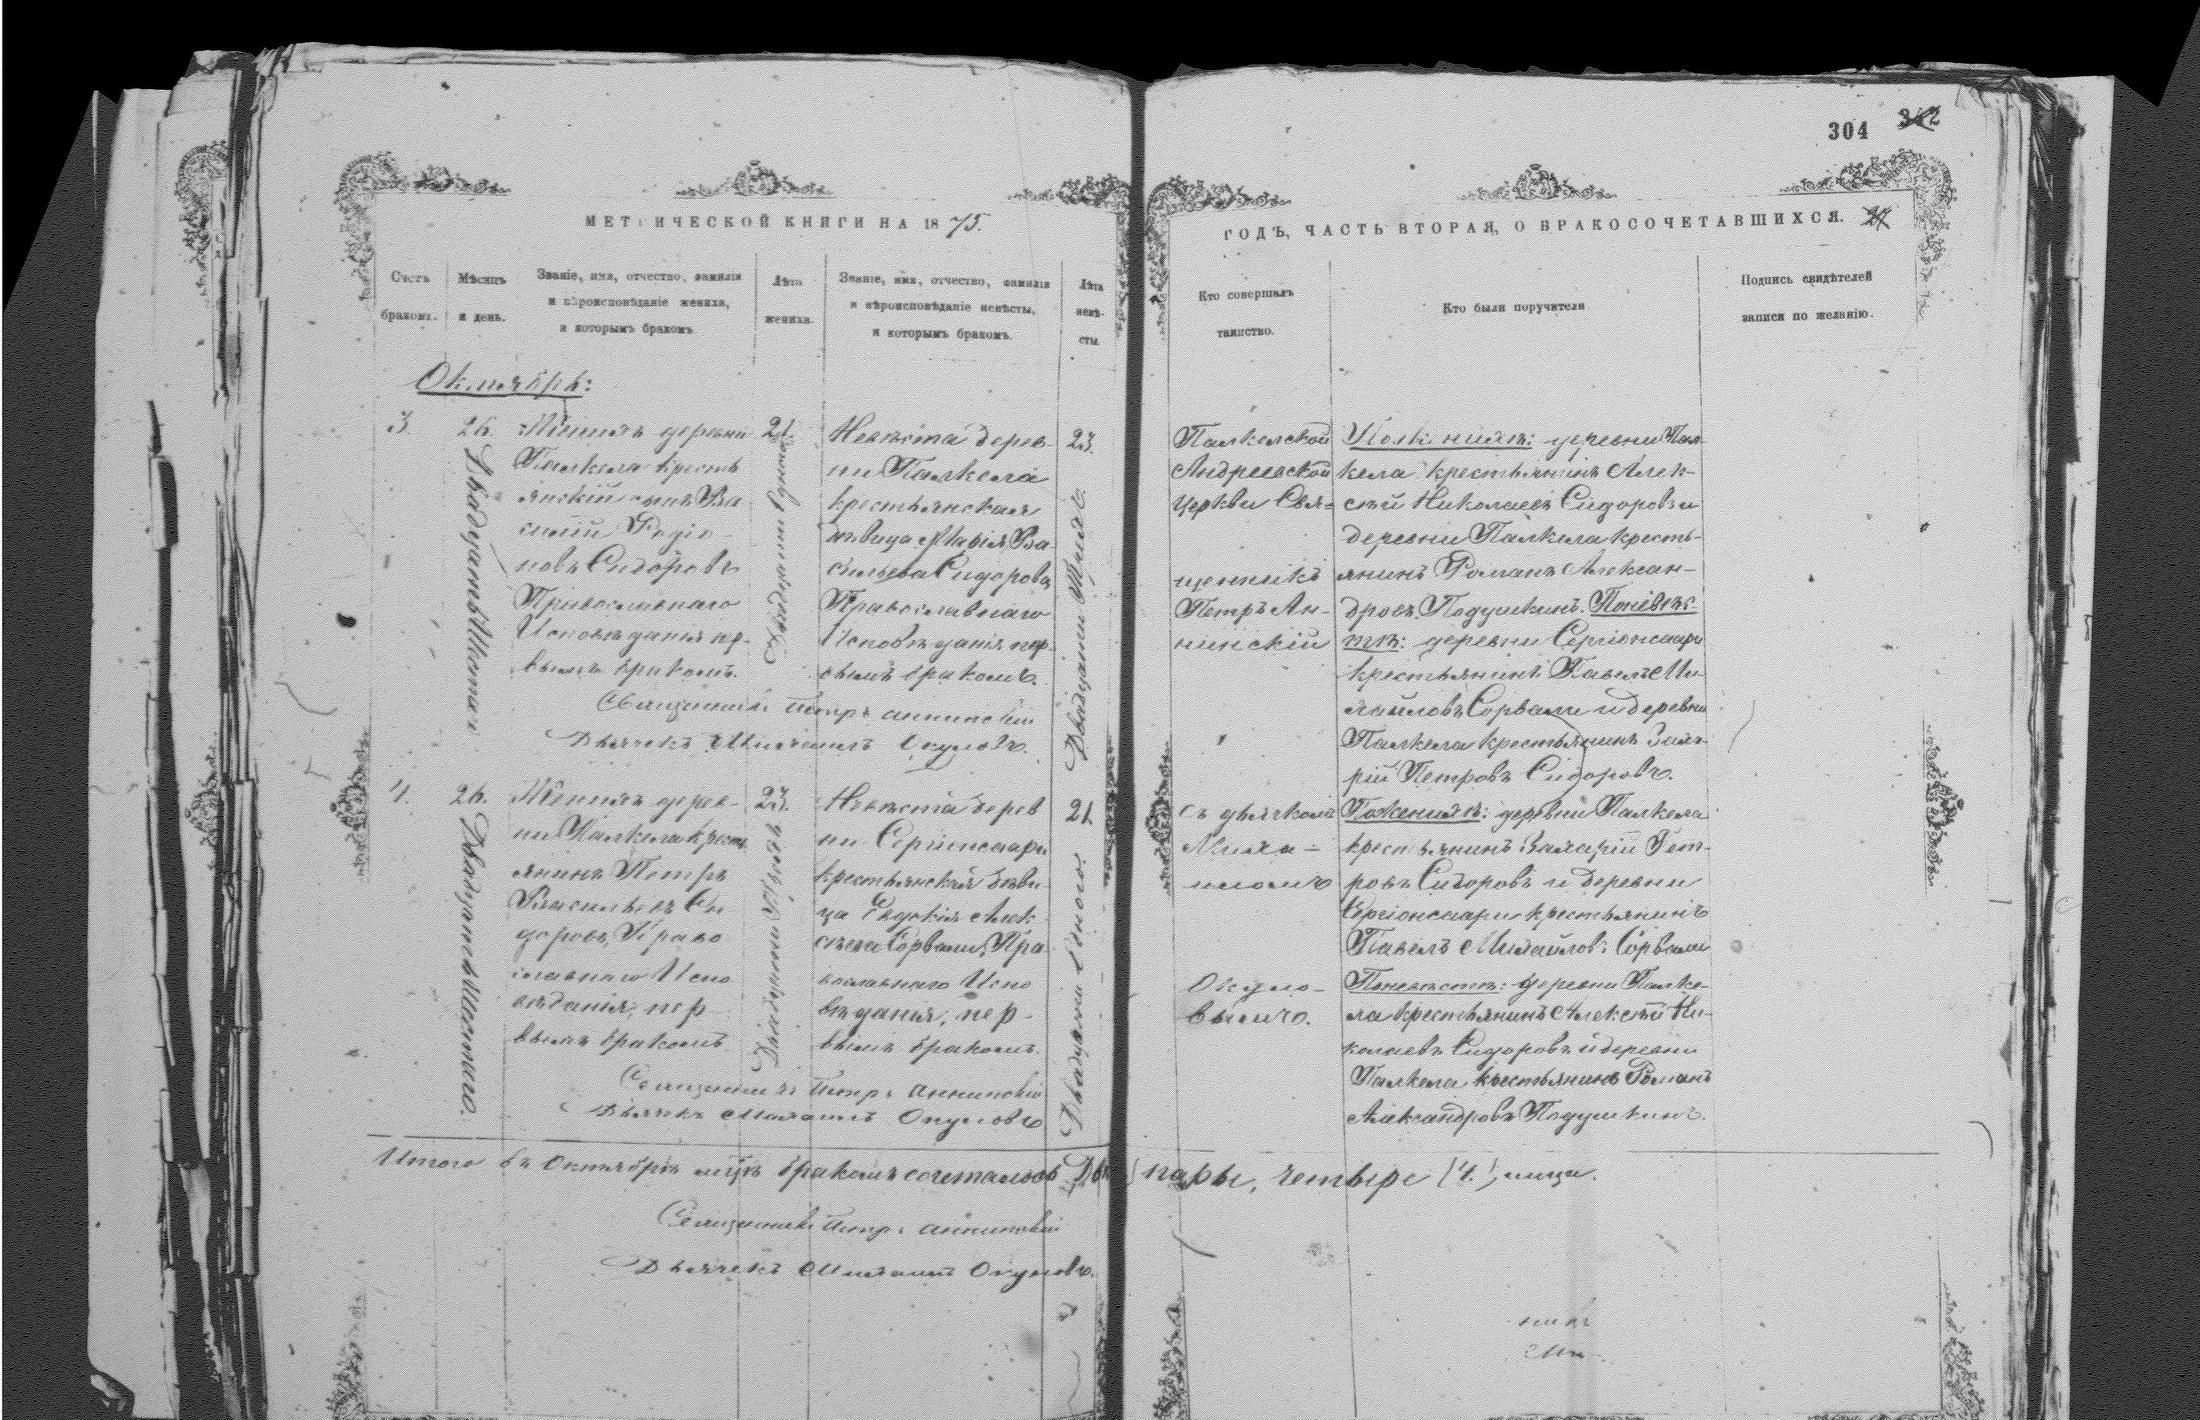 304 342
МЕТРИЧЕСКОЙ КНИГИ НА 1875.
ГОДЪ, ЧАСТЬ ВТОРАЯ, О БРАКОСОЧЕТАВШИХСЯ.
Счетъ
браковъ.
Мѣсяцъ
и день.
Званіе, имя, отчество, фамилія
и вѣроисповѣданіе жениха,
и которымъ бракомъ
Лѣта
жениха.
Званіе, имя, отчество, фамилія
и вѣроисповѣданіе невѣсты,
и которымъ бракомъ.
Лѣта
невѣ-
сты.
Кто совершалъ
таинство.
Кто были поручители
Подпись свидѣтелей
записи по желанію.
Октябрь:
3.
26.
Двадцать Шестаго
Женихъ деревни
Палкела кресть
янскій сынъ Ва
силій Родіо-
новъ Сидоровъ
Православнаго
Исповѣданія пер-
вымъ бракомъ.
21.
Двадцати одного.
Невѣста дерев-
ни Палкела
крестьянская
дѣвица Марія Ва-
сильева Сидорова,
Православнаго
Исповѣданія пер-
вымъ бракомъ.
23.
Двадцати Трехъ.
Священникъ Петръ Аннинскій
Дьячекъ Михаилъ Окуловъ.
Палкелской
Андреевской
Церкви Свя-
щенникъ
Петръ Ан-
нинскій
По женихѣ: деревни Пал-
кела крестьянинъ Алек-
сѣй Николаевъ Сидоровъ и
деревни Палкела кресть-
янинъ Романъ Алексан-
дровъ Подушкинъ. По невѣс-
тѣ: деревни Сергіонсаари
крестьянинъ Павелъ Ми-
хайловъ Сорвали и деревни
Палкела крестьянинъ Заха-
рій Петровъ Сидоровъ.
4.
26.
Двадцать Шестаго.
Женихъ дерев-
ни Палкела кресть
янинъ Петръ
Васильевъ Си-
доровъ, Право
славнаго Испо
вѣданія, пер-
вымъ бракомъ
23.
Двадцати Трехъ
Невѣста дерев
ни Сергіонсаари
крестьянская дѣви-
ца Евдокія Алек
сѣева Сорвали, Пра
вославнаго Испо
вѣданія, пер-
вымъ бракомъ.
21.
Двадцати одного.
Священникъ Петръ Аннинскій
Дьячекъ Михаилъ Окуловъ
съ дьячкомъ
Михаи-
иломъ
Окуло-
вымъ.
По женихѣ: деревни Палкела
крестьянинъ Захарій Пет-
ровъ Сидоровъ и деревни
Сергіонсаари крестьянинъ
Павелъ Михайловъ Сорвали
По невѣстѣ: деревни Палке-
ла крестьянинъ Алексѣй Ни-
колаевъ Сидоровъ и деревни
Палкела крестьянинъ Романъ
Александровъ Подушкинъ.
Итого въ Октябрѣ мцѣ бракомъ сочеталось Двѣ пары, четыре (4.) лица.
Священникъ Петръ Аннинскій
Дьячекъ Михаилъ Окуловъ.